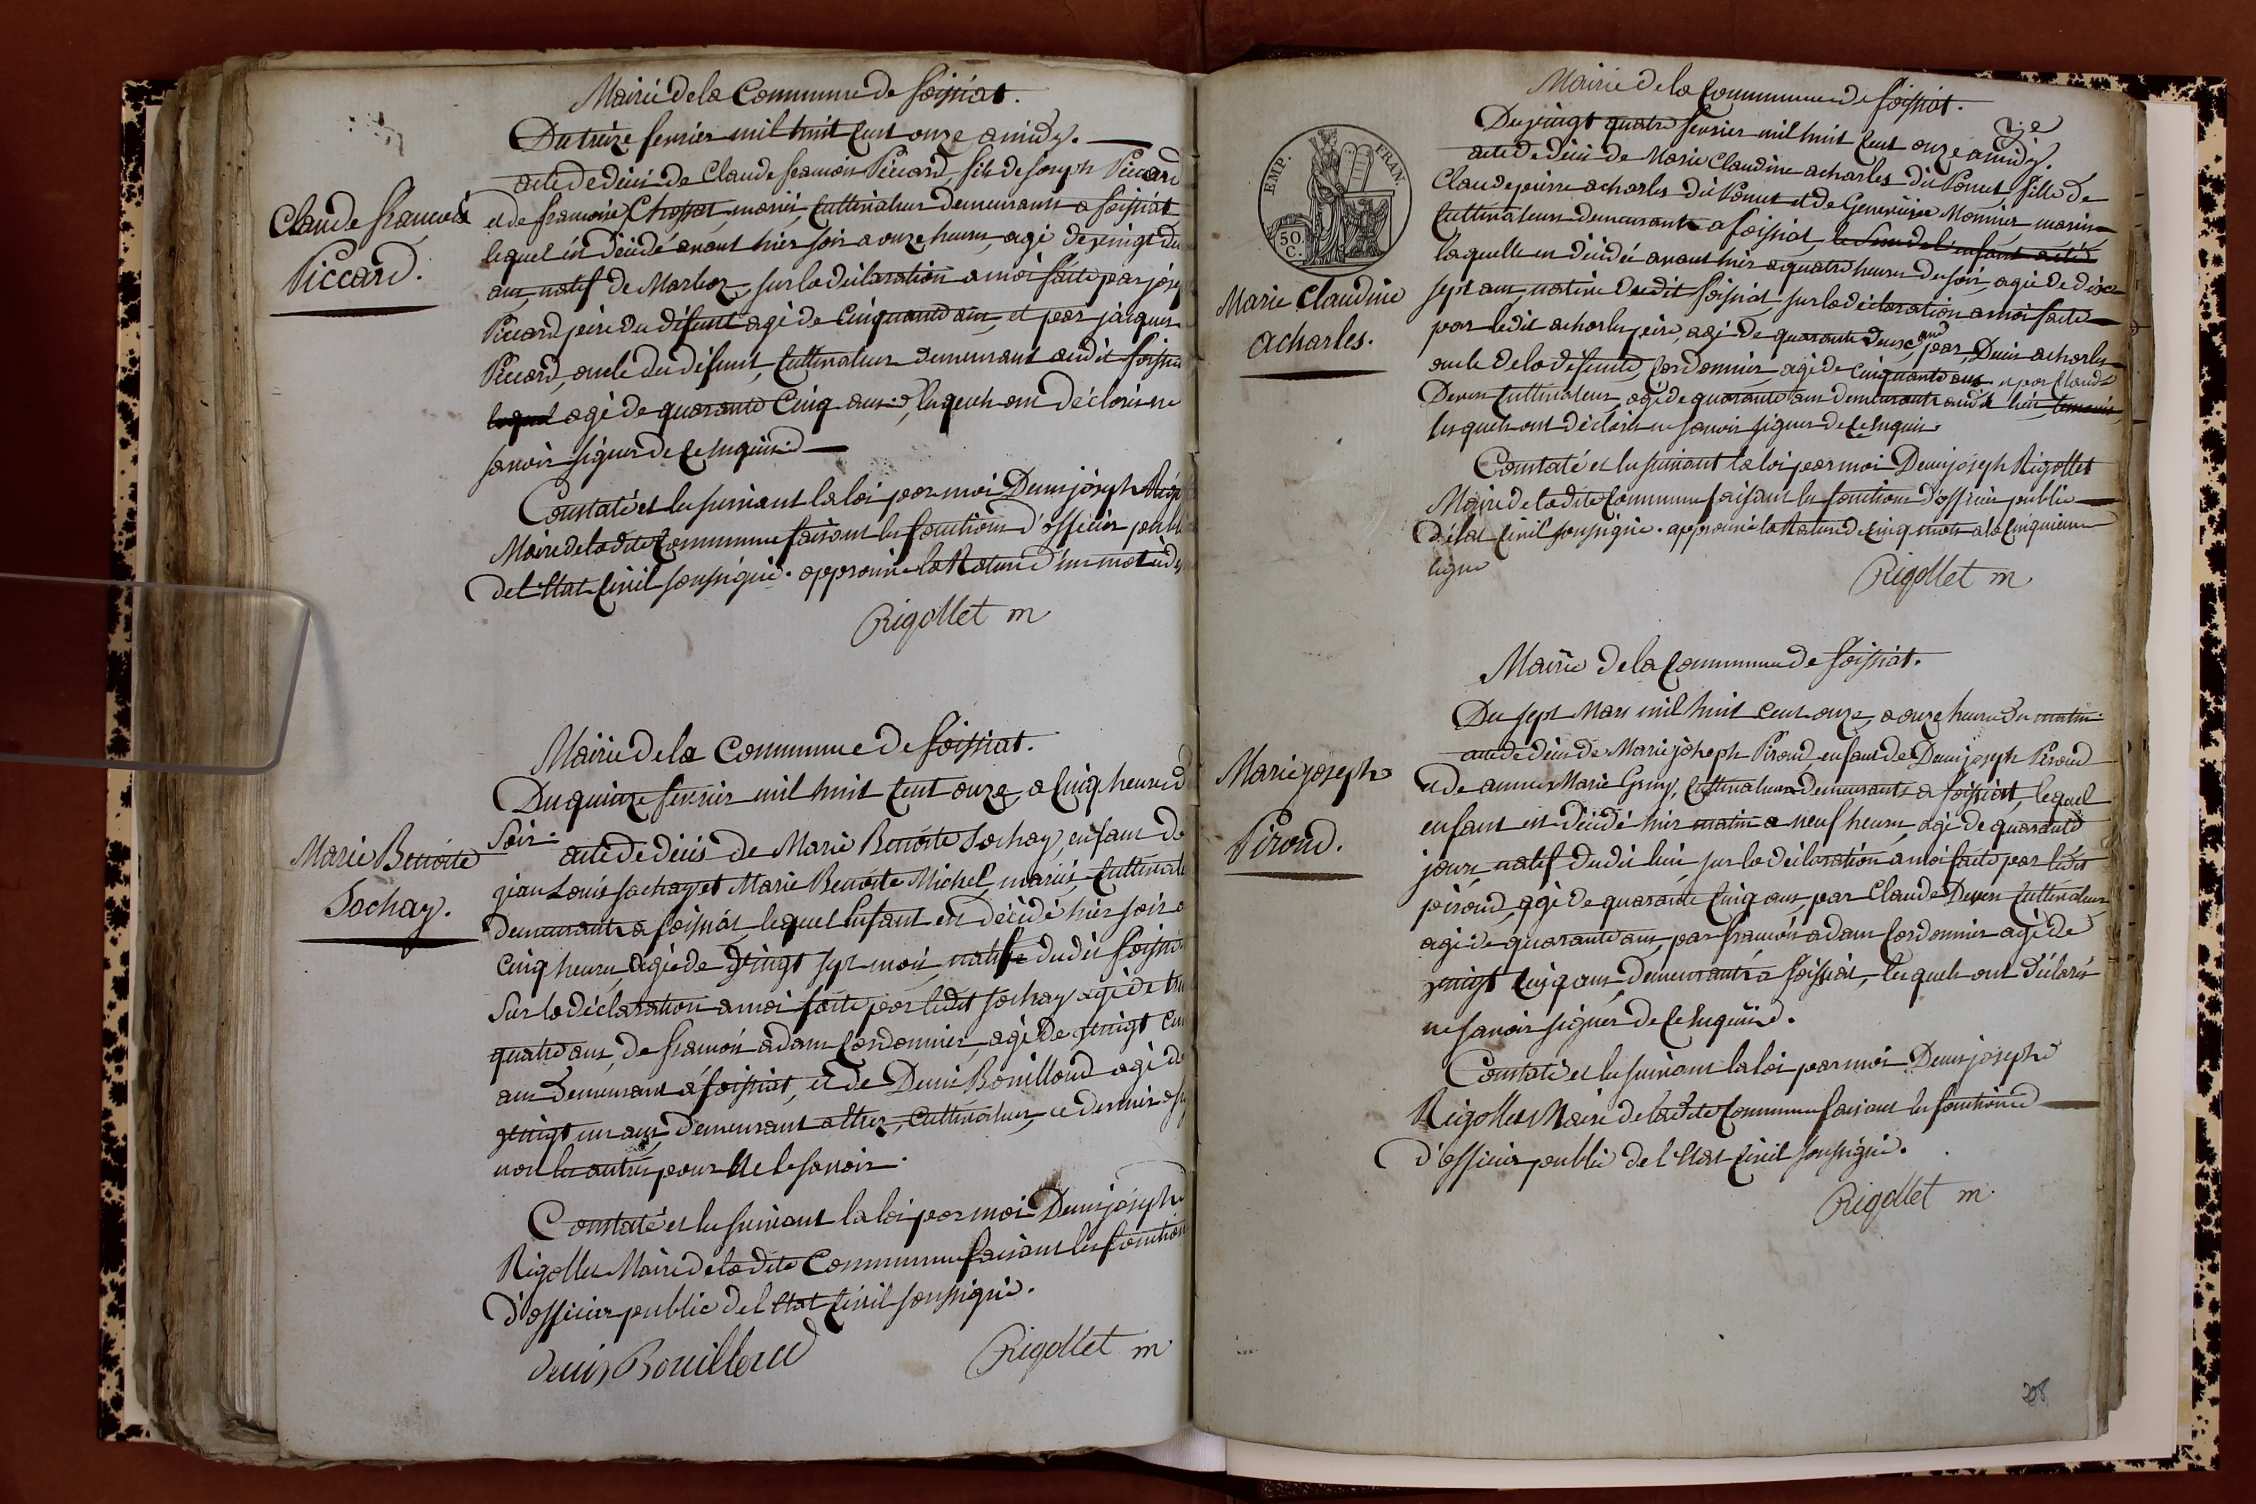 Mairie de la Commune de foissiat.
Du treize fevrier mil huit Cent onze a midy.
acte de décès de Claude francois Piccard, fils de joseph Piccard
Claude francois
Piccard.
et de francoise Chossat, mariés, Cultivateurs demeurants a foissiat
lequel est décédé avant hier soir a onze heures, agé de vingt
ans, natif de Marboz, sur la déclaration a moi faite par
Piccard, pere du défunt agé de Cinquante ans, et par jacques
Piccard, oncle du défunt, Cultivateur demeurant audit
lequel agé de quarante Cinq ans lesquels ont déclarés ne
savoir signer de Ce enquis.
Constaté et lu suivant la loi par moi Denis joseph
Maire de la dite Commune faisant les fonctions d'officier
de l'Etat Civil soussigné. approuvé la Rature d'un mot
Rigollet m
Mairie de la Commune de foissiat.
Du quinze fevrier mil huit Cent onze, a Cinq heures
soir.
Marie Benoite
Sochay.
acte de décès de Marie Benoite Sochay, enfant de
jean Louis sochay et Marie Benoite Michel, mariés,
demeurants a foissiat, lequel Enfant est décédé hier soir a
Cinq heures, agé de vingt sept mois, natif dudit
Sur la déclaration a moi faite par ledit sochay agé de
quatre ans, de francois adam Cordonnier, agé de vingt
ans demeurant a foissiat, et de Denis Bouilloud agé de
vingt un ans, demeurant a Cultivateur, ce dernier
non les autres pour Ne le savoir.
Constaté et lu suivant la loi par moi Denis joseph
Rigollet Maire de la dite Commune faisant les fonctions
d'officier public de l'Etat Civil soussigné.
denis Bouilloud
Rigollet m
Mairie de la Commune de foissiat.
Du vingt quatre fevrier mil huit Cent onze a midy.
EMP. FRAN.
50. C.
Marie Claudine
acharles.
acte de décès de Marie Claudine acharles dit fille de
Claude pierre acharles dit et de Genevieve Monnier mariés
Cultivateurs demeurants a foissiat,
laquelle est décédée avant hier a quatre heures du soir, agée de dix
sept ans, native dudit foissiat, sur la déclaration a moi faite
par ledit acharles pere, agé de quarante deux ans, par Denis acharles
oncle de la défunte, Cordonnier, agé de Cinquante ans et par Claude
Cultivateur, agé de quarante ans demeurants audit lieu,
lesquels ont déclarés ne savoir signer de Ce enquis.
Constaté et lu suivant la loi par moi Denis joseph Rigollet
Maire de la dite Commune faisant les fonctions d'officier public
d'état Civil soussigné. approuvé la Rature de Cinq mots a la Cinquieme
ligne
Rigollet m
Mairie de la Commune de foissiat.
Du sept Mars mil huit Cent onze, a onze heures du matin.
Marie joseph
Piroud.
acte de décès de Marie joseph Piroud enfant de Denis joseph Piroud
et de anne Marie Cultivateurs demeurants a foissiat, lequel
enfant est décédé hier matin a neuf heures, agé de quarante
jours, natif dudit lieu, sur la déclaration a moi faite par ledit
piroud, agé de quarante Cinq ans, par Claude Cultivateur
agé de quarante ans, par francois adam Cordonnier agé de
vingt Cinq ans, demeurants a foissiat, lesquels ont déclarés
ne savoir signer de Ce enquis.
Constaté et lu suivant la loi par moi Denis joseph
Rigollet Maire de la dite Commune faisant les fonctions
d'officier public de l'Etat Civil soussigné.
Rigollet m.
208